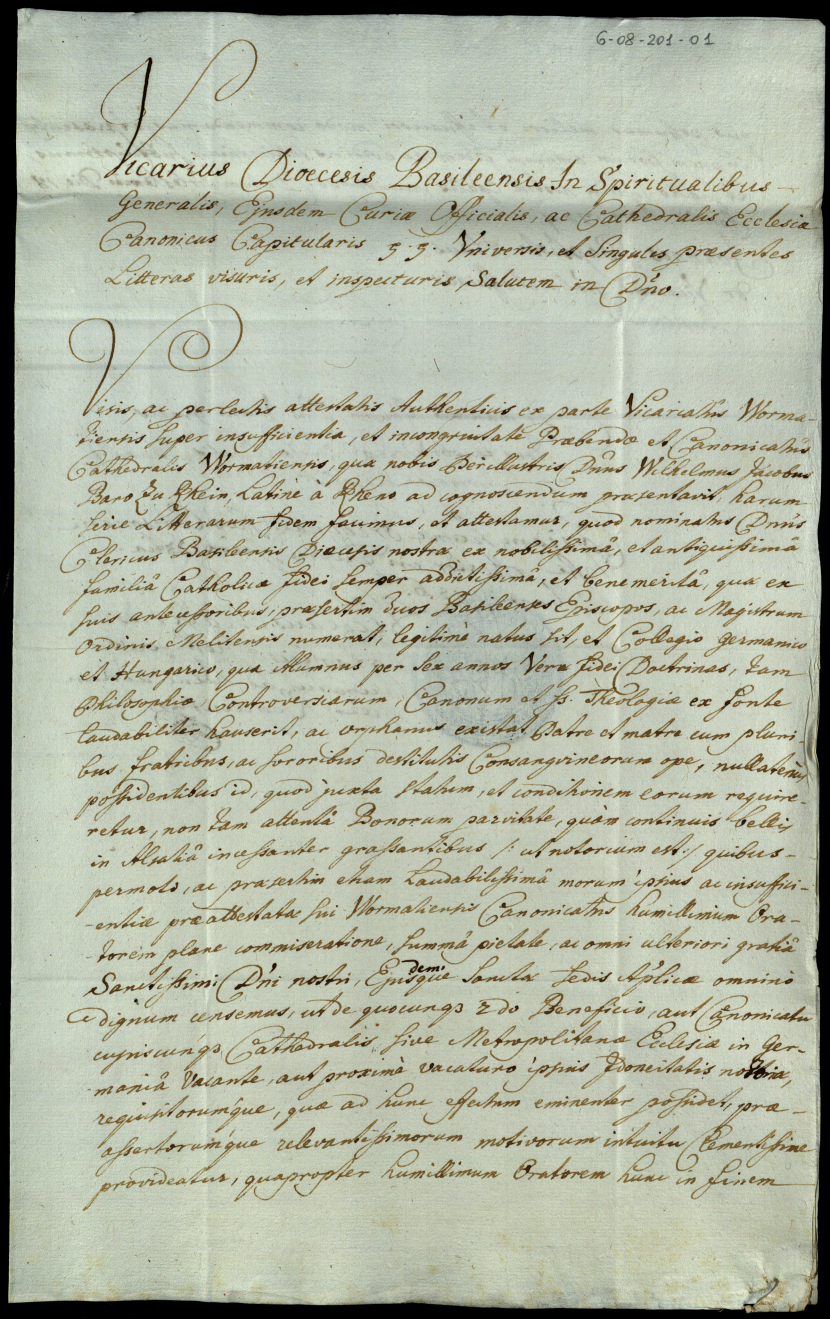 6-08-201-01
Vicarius Dioecesis Basileensis In Spiritualibus
Generalis, Ejusdem Curiæ Officialis, ac Cathedralis Ecclesiæ
Canonicus Capitularis Vniversis, et Singulis præsentes
Litteras visuris, et inspecturis Salutem in Dño.
Visis, ac perlectis attestatis Authenticis ex parte Vicariatûs Worma-
tiensis super insufficientia, et incongruitate Præbendæ et Canonicatûs
Cathedralis Wormatiensis, quæ nobis Perillustris Dñus Wilhelmus Jacobus
Baro Zu Rhein, Latinè à Rheno ad cognoscendum præsentavit, harum
serie Litterarum fidem facimus, et attestamur, quod nominatus Dnus
Clericus Basileensis Diœcesis nostræ ex nobilissimâ, et antiquissimâ
familiâ Catholicæ fidei semper addictissimâ, et benemeritâ, quæ ex
suis antecessoribus, præsertim duos Basileenses Episcopos, ac Magistrum
Ordinis Melitensis numerat, legitimè natus sit, et Collegio Germanico
et Hungarico, qua Alumnus per sex annos Veræ fidei Doctrinas, tam
Philosophiæ Controversiarum, Canonum et ss. Theologiæ ex fonte
laudabiliter hauserit, ac orphanus existat Patre et matre cum pluri
bus fratribus, ac sororibus destitutis Consangvineorum ope, nullatenus
possidentibus id, quod juxta statum, et conditionem eorum require-
retur, non tam attentâ Bonorum parvitate, quàm continuis bellis
in Alsatiâ incessanter grassantibus /: ut notorium est :/ quibus-
permoti, ac præsertim etiam Laudabilissimâ morum ipsius ac insuffici-
-entiæ præattestatæ sui Wormatiensis Canonicatûs humillimum Ora-
-torem plane commiseratione, summâ pietate, ac omni ulteriori gratiâ
Sanctissimi Dñi nostri, Ejusdemque Sanctæ Sedis Aplicæ omnino
dignum censemus, ut de quocunq3 2do Beneficio, aut Canonicatu
cujuscunq3 Cathedralis sive Metropolitanæ Ecclesiæ in Ger-
maniâ Vacante, aut proximè vacaturo ipsius Idoneitatis
requisitorumque, quæ ad hunc effectum eminenter possidet, præ-
assertorumque relevantissimorum motivorum intuitu Clementissime
provideatur, quapropter humillimum Oratorem hunc in finem